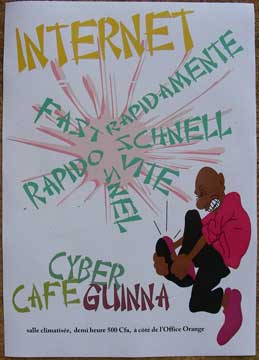 INTERNET
FAST
RAPIDAMENTE
RAPIDO
SCHNELL
VITE
SNEL
CYBER
CAFE GUINNA
salle climatisée, demi heure 500 Cfa, à côté de l'Office Orange